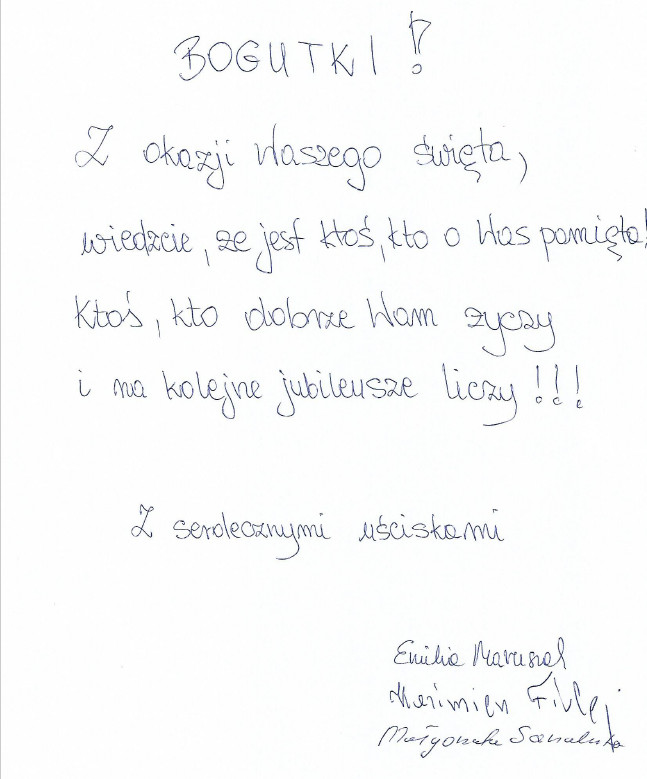 BOGUTKI!
Z okazji Waszego święta,
wiedzcie, że jest ktoś, kto o Was pamięta!
Ktoś, kto dobrze Wam życzy
i na kolejne jubileusze liczy!!!
Z serdecznymi uściskami
Emilia
Małgorzata